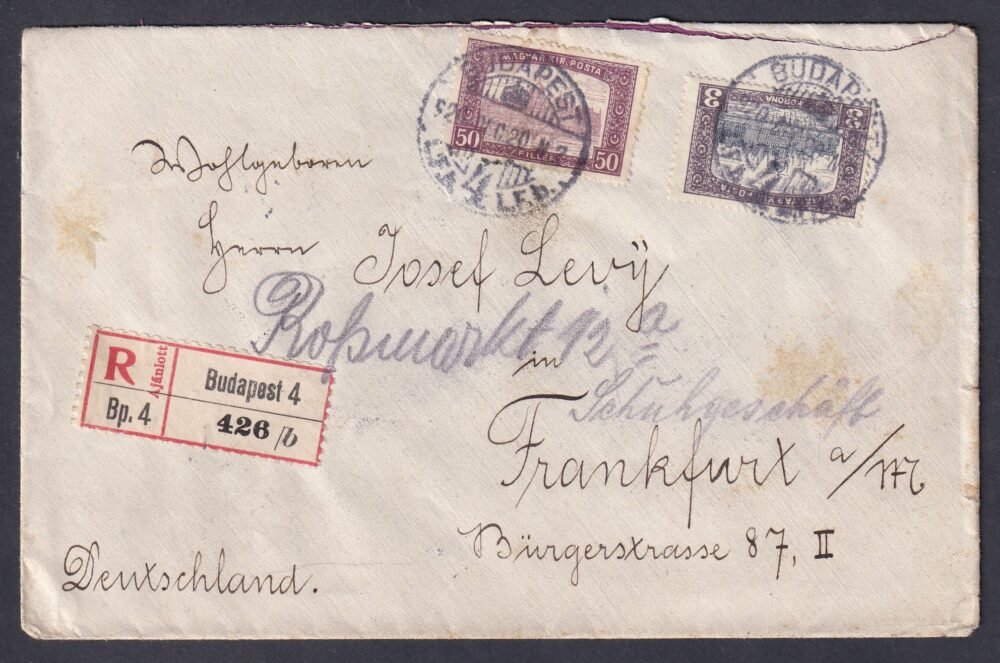 MAGYAR KIR. POSTA
50 FILLÉR 50
3 KORONA 3
BUDAPEST
4
BUDAPEST
4
Wohlgeboren
Herrn Josef Levÿ
Roßmarkt 12 a
in
Schuhgeschäft
R Ajánlott Budapest 4
Bp. 4 426 /b
Frankfurt a/M
Bürgerstrasse 87, II
Deutschland.